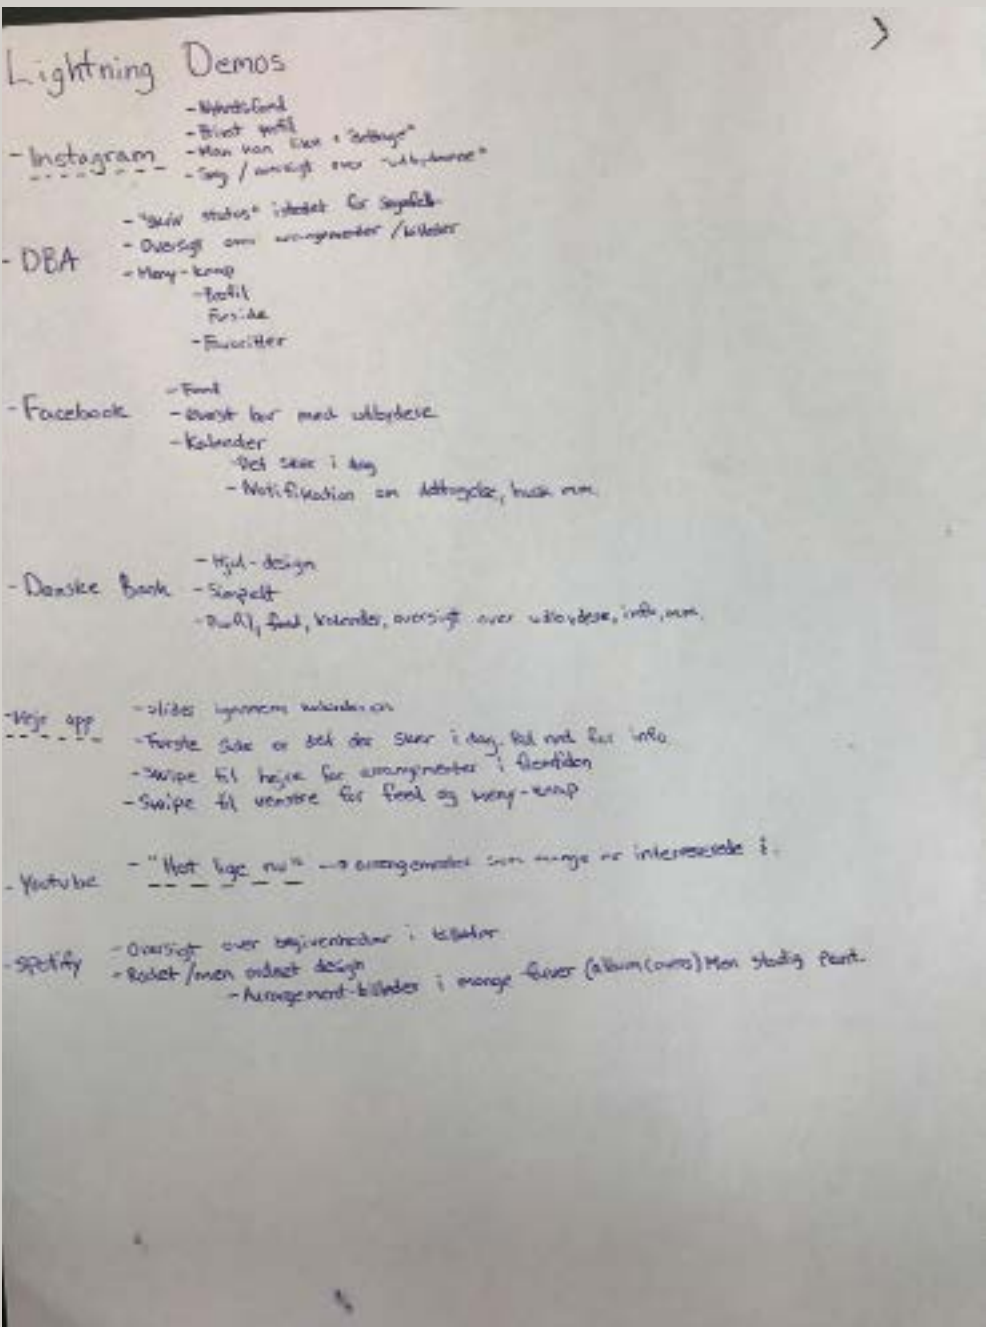 Lightning Demos
- Instagram
- Nyhedsfeed
- Privat profil
- Man kan like + "deltage"
- Søg / oversigt over "udbyderne"
- DBA
- "Skriv status" istedet for søgefelt
- Oversigt over arrangementer / billeder
- Meny-knap
- Profil
Forside
- Favoritter
- Facebook
- Feed
- Øverst bar med udbydere
- Kalender
- Det sker i dag
- Notifikation om deltagelse, husk mm.
- Danske Bank
- Hjul-design
- Simpelt
- Profil, feed, kalender, oversigt over udbydere, info, mm.
- Veje app
- Slides igennem kalenderen
- Første side er det der sker i dag. Rul ned for info
- Swipe til højre for arrangementer i fremtiden
- Swipe til venstre for feed og meny-knap
- Youtube
- "Hot lige nu" → arrangementer som mange er interesserede i.
- Spotify
- Oversigt over begivenheder i billeder
- Rodet /men ordnet design
- Arrangement-billeder i mange farver (album covers) Men stadig pænt.